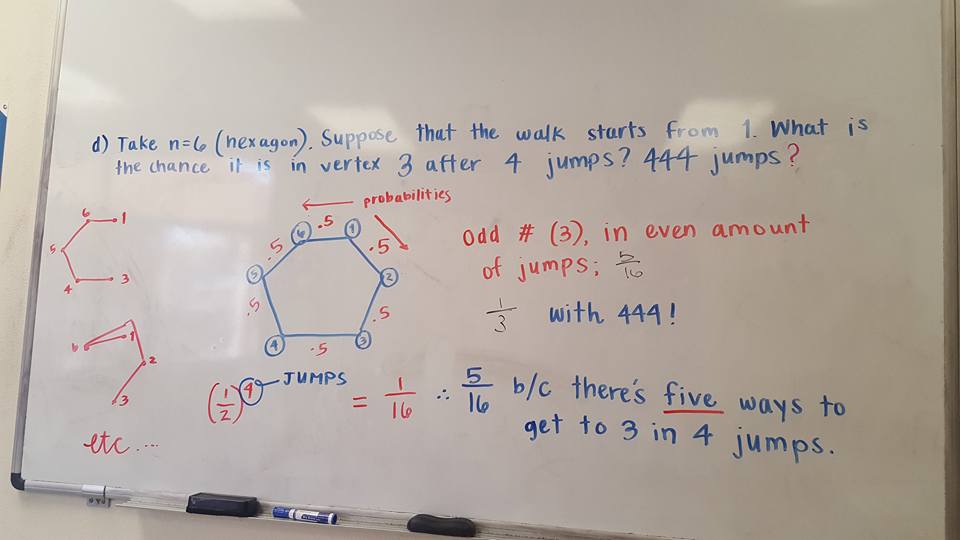 d) Take n=6 (hexagon). Suppose that the walk starts from 1. What is
the chance it is in vertex 3 after 4 jumps? 444 jumps?
← probabilities
6 1
5
4 3
6 .5 1
.5 .5
5 2
.5 .5
4 .5 3
Odd # (3), in even amount
of jumps; 5/16
1/3 with 444!
6 1
2
3
(1/2)^4 JUMPS = 1/16 ∴ 5/16 b/c there's five ways to
get to 3 in 4 jumps.
etc...